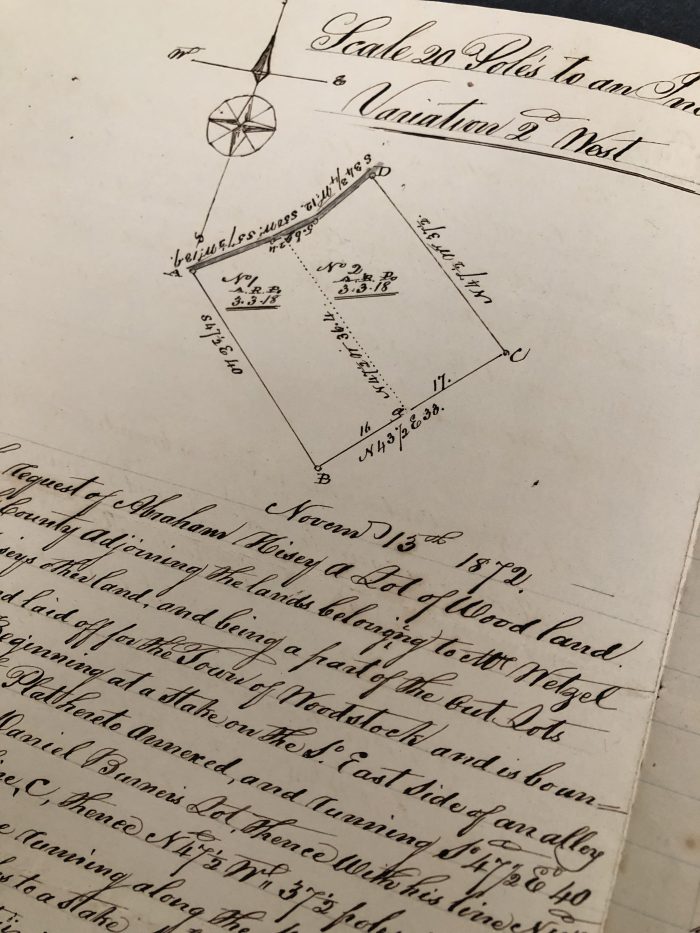 Scale 20 Poles to an In
Variation 2° West
W
E
S
A
D
S 34 3/4 W. 12.
No 1
A. R. Po
3. 3. 18
No 2
A. R. Po
3. 3. 18
N 47 1/2 W 37 1/2.
S 47 1/2 E 40
N 47 1/2 W 36.4
C
17.
16
N 43 1/2 E 33.
B
Novem 15th 1872.
Request of Abraham Hisey a Lot of Wood land
County adjoining the lands belonging to Wetzel
other land, and being a part of the out Lots
laid off for the Town of Woodstock and is boun=
Beginning at a Stake on the So East Side of an alley
Plat hereto annexed, and running So 47 1/2 E 40
Daniel Burners Lot, thence With his line
C, thence N 47 1/2 W 37 1/2 poles
running along the
to a stake